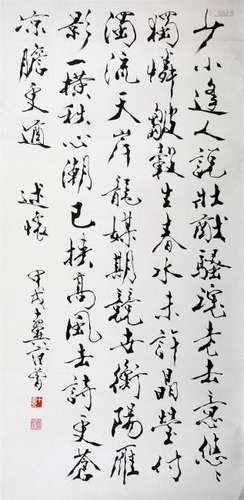 少小逢人説壯猷騷魂老去意悠悠
獨憐皺縠生春水未許晶瑩付
濁流天岸龍媒期競衡陽雁
影一橫秋心潮已挾高風去詩更蒼
涼膽更遒 述懷
甲戌十翼范曾